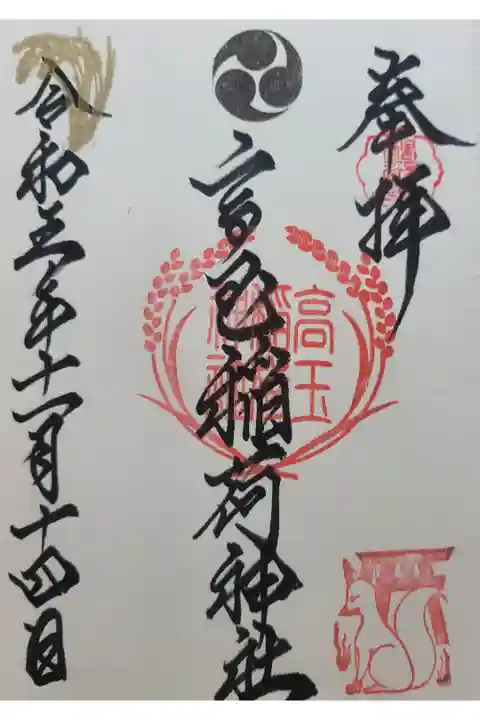 奉拝
高玉稲荷神社
令和五年十一月十四日
高玉
稲荷
神社